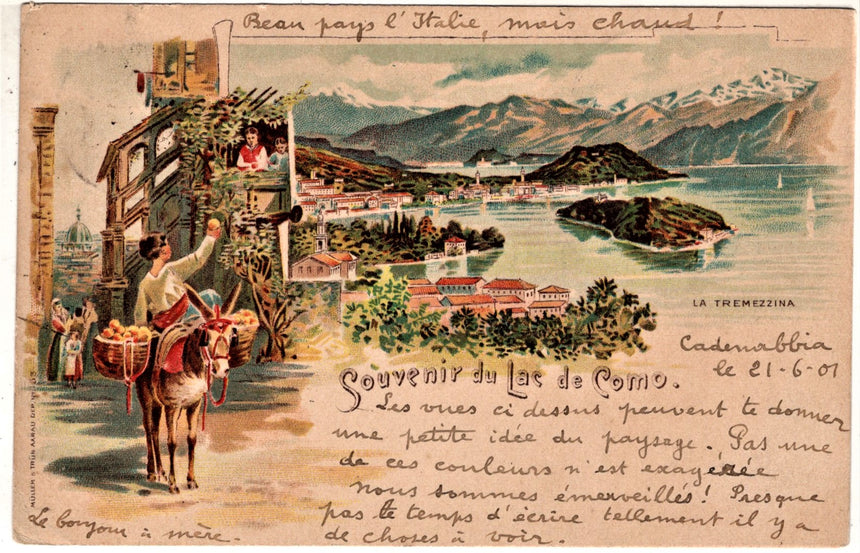 Beau pays l'Italie, mais chaud !
LA TREMEZZINA
Cadenabbia
le 21-6-01
Souvenir du Lac de Como.
Les vues ci dessus peuvent te donner
une petite idée du paysage. Pas une
de ces couleurs n'est exagérée
Nous sommes émerveillés ! Presque
pas le temps d'écrire tellement il y a
de choses à voir.
Le bonjour à mère.
MÜLLER & TRÜB AARAU DEP. Nº